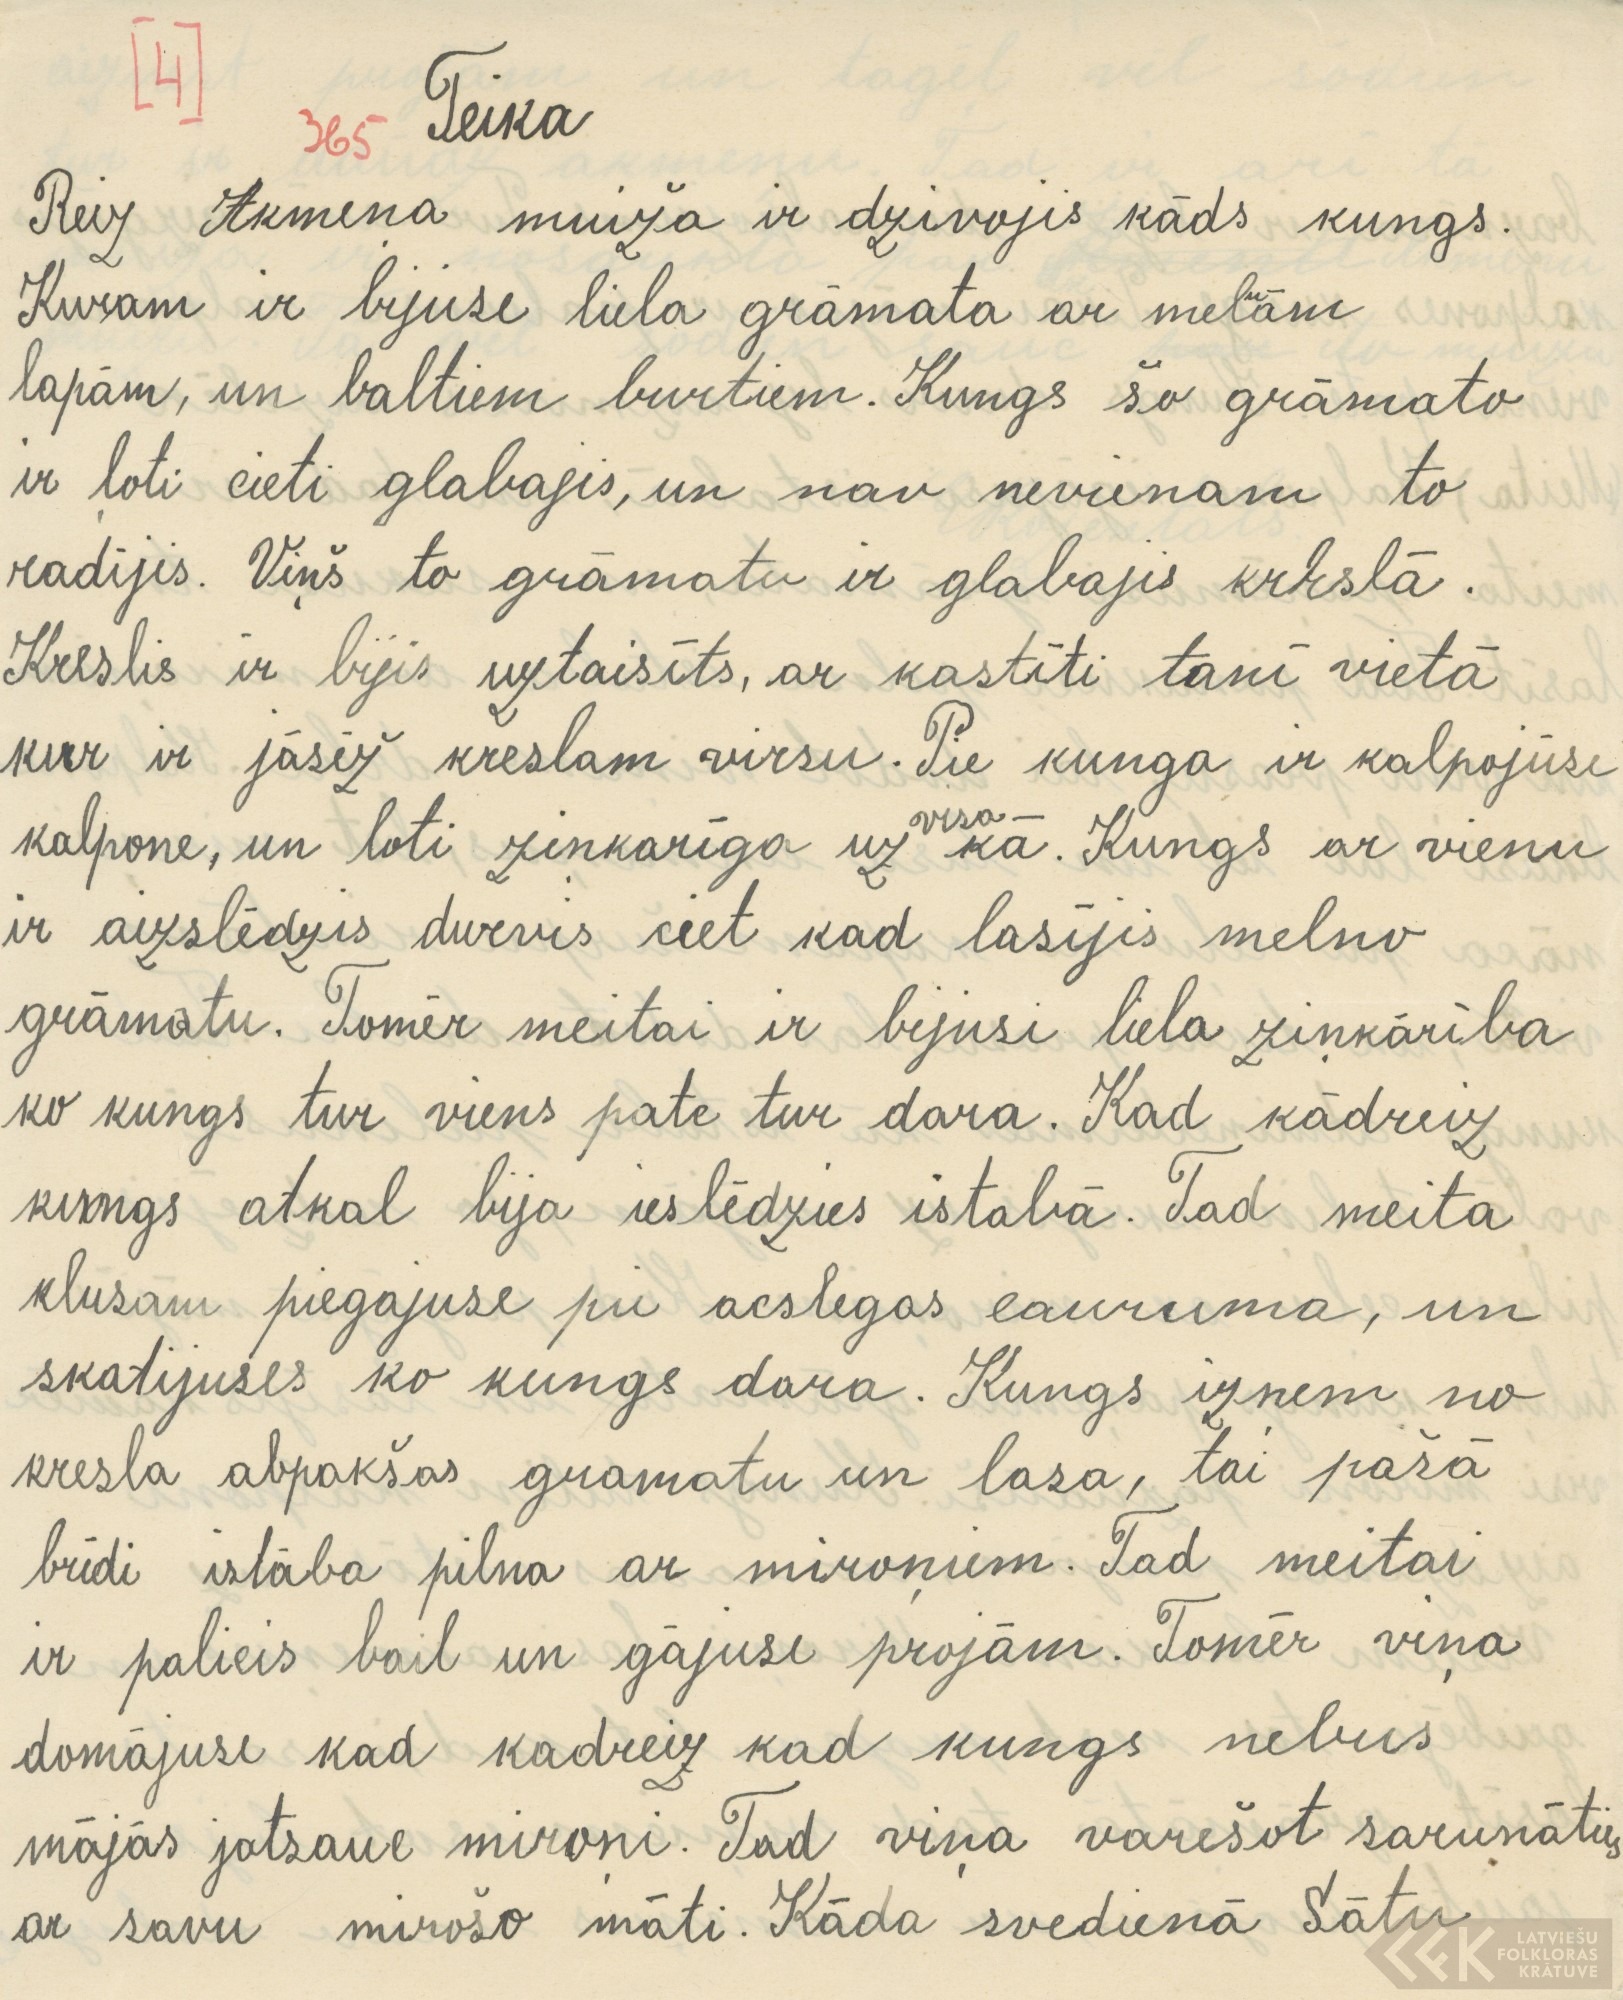 [4]
365 Teika
Reiz Akmeņa muiža ir dzivojis kāds kungs.
Kuram ir bijuse liela grāmata ar melnām
lapām, un baltiem burtiem. Kungs šo grāmato
ir ļoti cieti glabajis, un nav nevienam to
radījis. Viņš to grāmatu ir glabajis krēslā.
Kreslis ir bijis uztaisīts, ar kastīti tanī vietā
kur ir jāsēž kreslam virsu. Pie kunga ir kalpojuse
kalpone, un loti ziņkarīga uz visa kā. Kungs ar vienu
ir aizslēdzis durvis ciet kad lasījis melno
grāmatu. Tomēr meitai ir bijusi liela ziņkārība
ko kungs tur viens pate tur dara. Kad kādreiz
kungs atkal bija ieslēdzies istabā. Tad meita
klusām piegājuse pie acslegas cauruma, un
skatijuses ko kungs dara. Kungs izņem no
kresla abpakšas gramatu un lasa, tai pašā
brīdi istāba pilna ar miroņiem. Tad meitai
ir palicis bail un gājuse projām. Tomēr viņa
domājuse kad kadreiz kad kungs nebus
mājās jatsauc miroņi. Tad viņa varešot sarunāties
ar savu mirošo māti. Kāda svedienā Sātu
LATVIEŠU
FOLKLORAS
KRĀTUVE